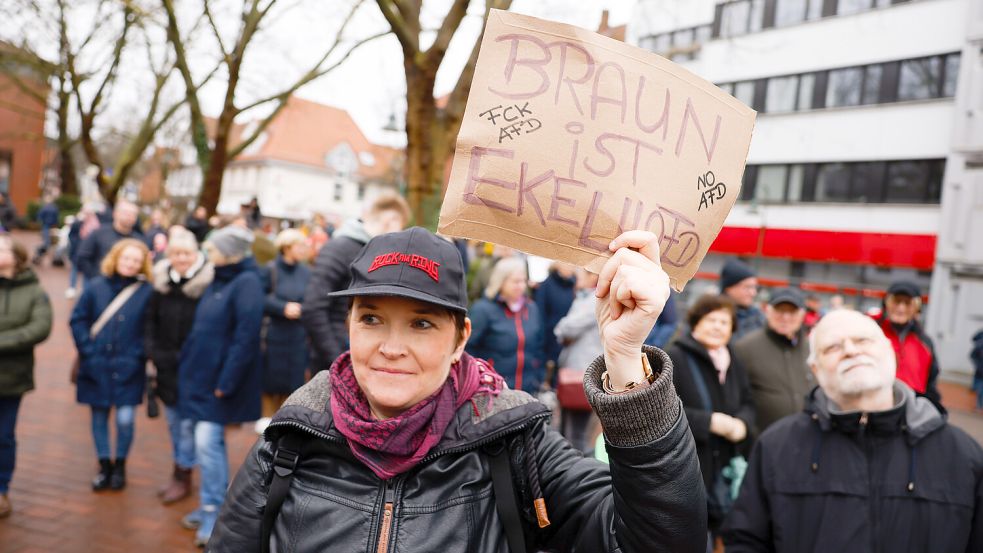 BRAUN
FCK
AFD
iST
EKELHAFD
NO
AFD
ROCK AM RING